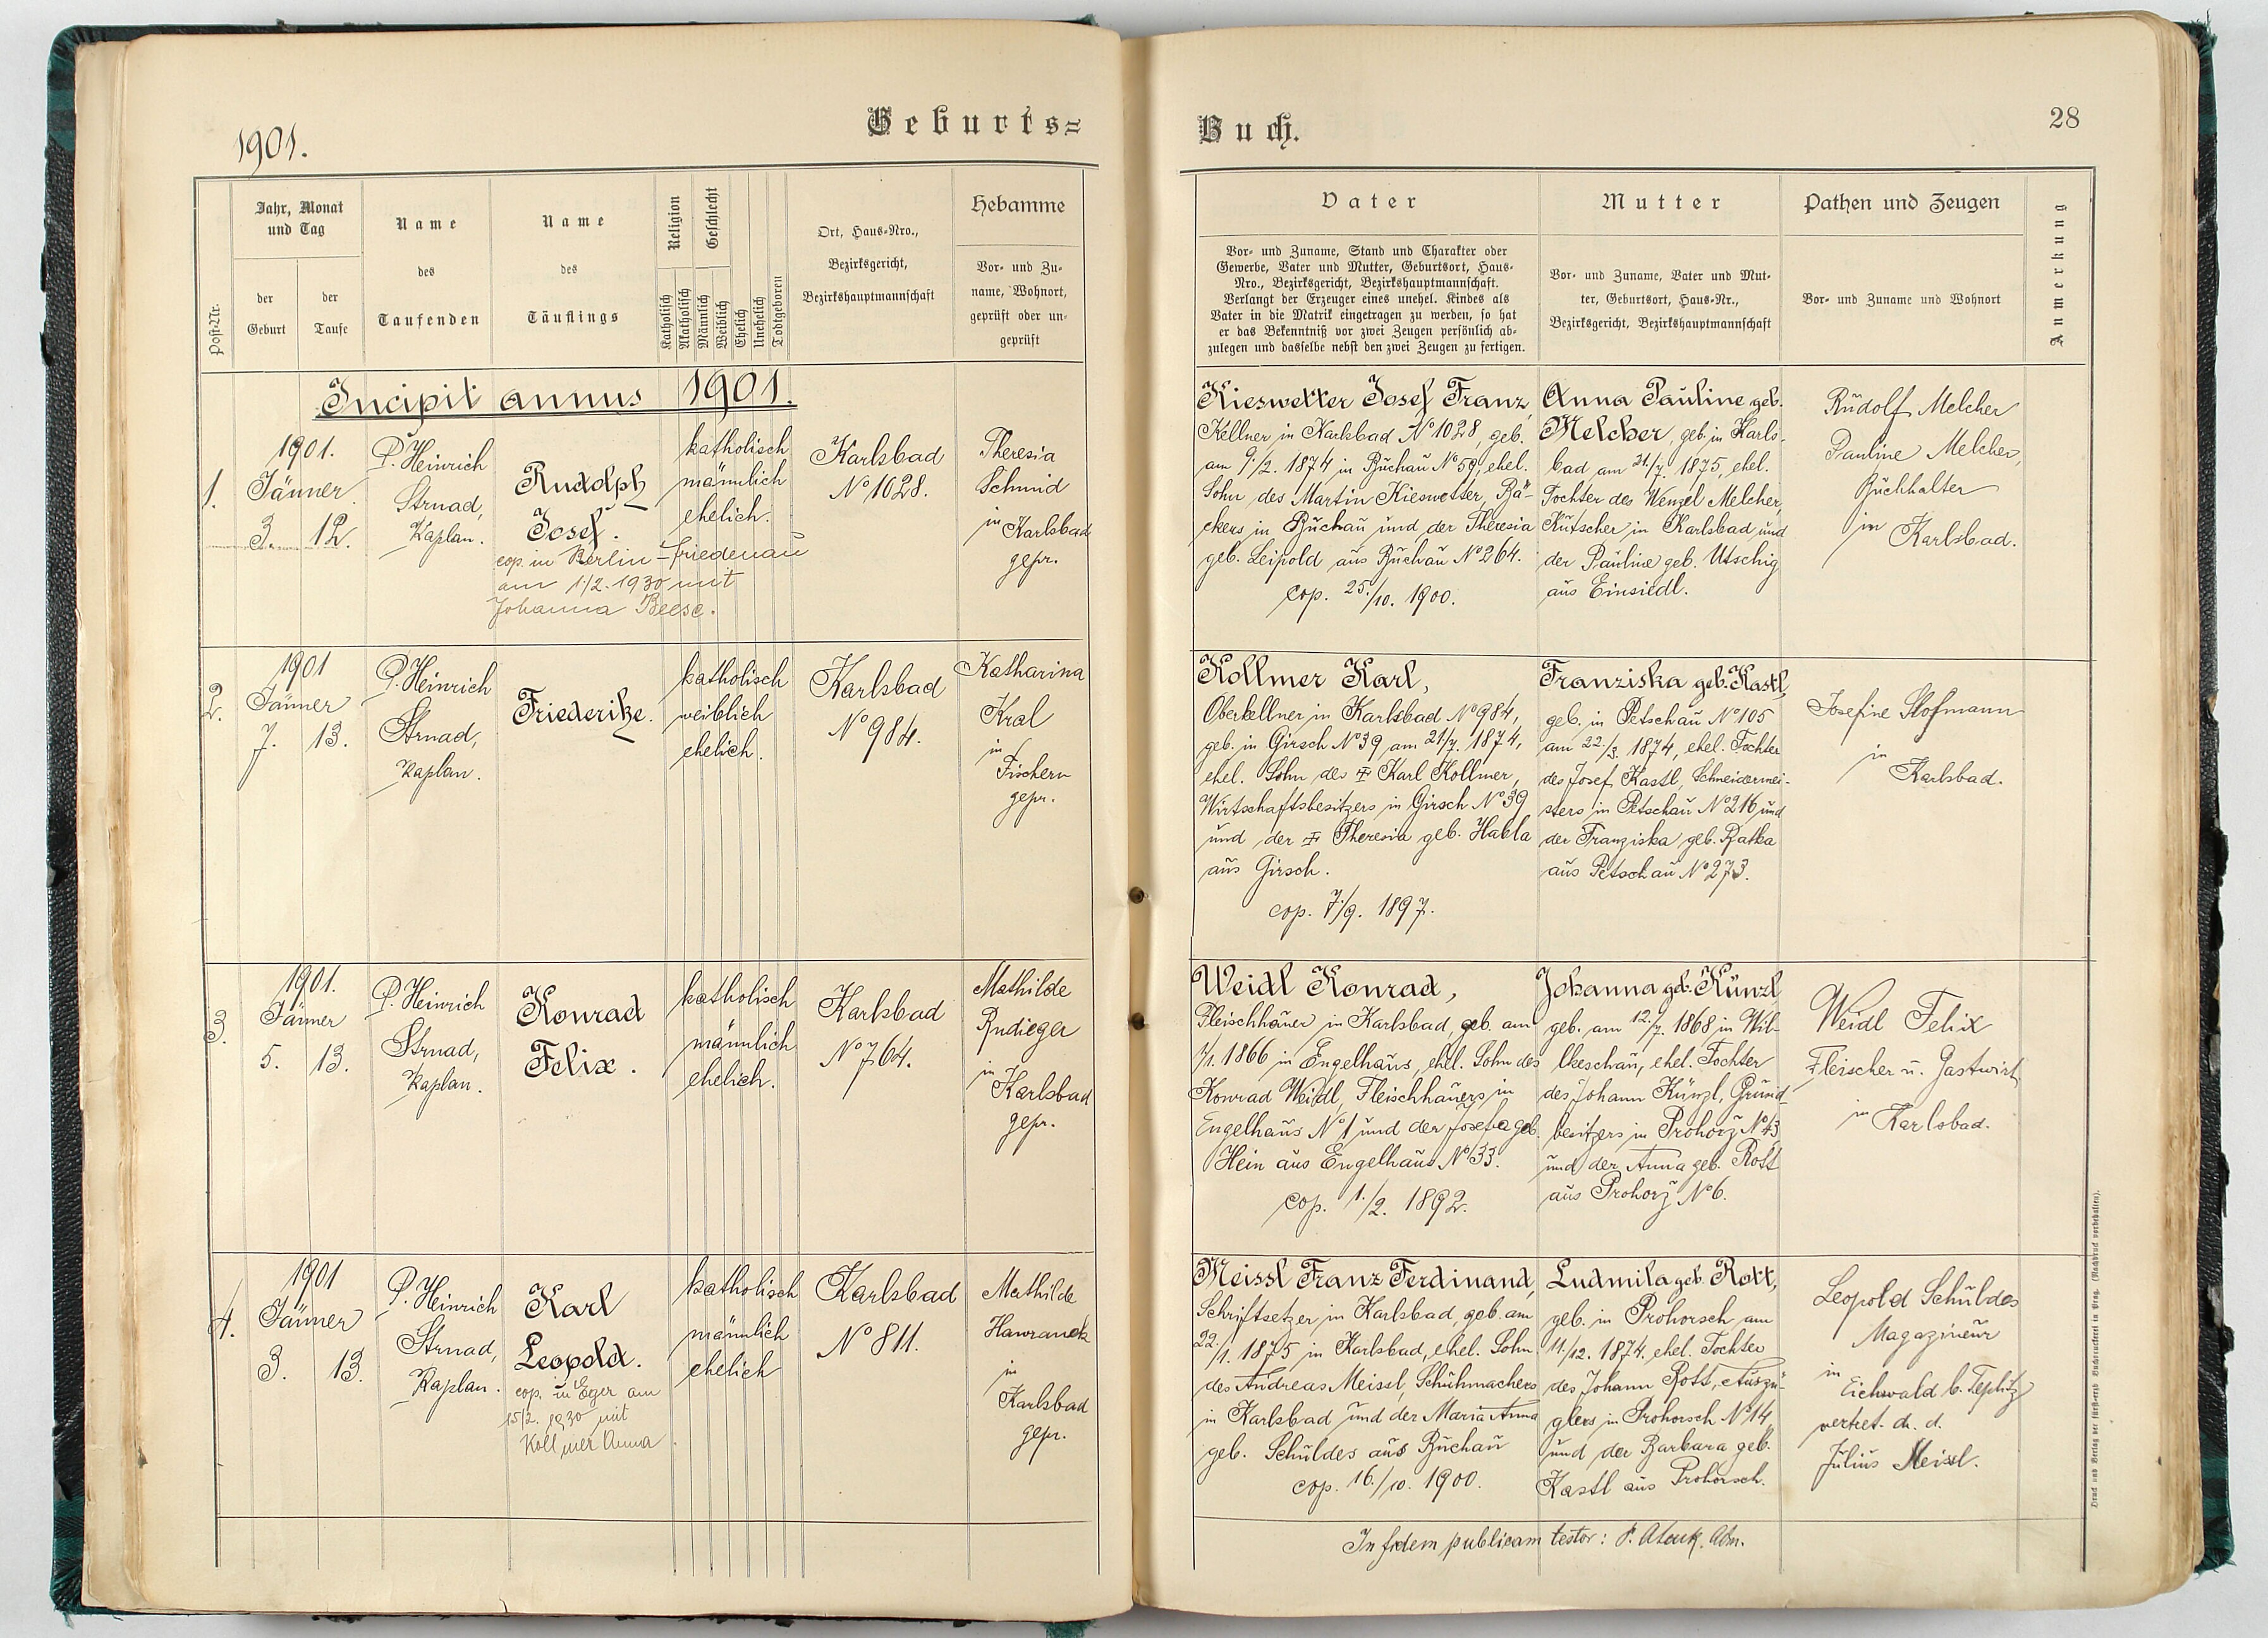 1901.
Geburts=
Post-Nr.
Jahr, Monat
und Tag
der
Geburt
der
Taufe
Name
des
Taufenden
Name
des
Täuflings
Religion
Katholisch
Akatholisch
Geschlecht
Männlich
Weiblich
Ehelich
Unehelich
Todtgeboren
Ort, Haus-Nro.,
Bezirksgericht,
Bezirkshauptmannschaft
Hebamme
Vor- und Zu-
name, Wohnort,
geprüft oder un-
geprüft
Incipit annus 1901.
1.
1901.
Jänner
3. 12.
P. Heinrich
Strnad,
Kaplan.
Rudolph
Josef.
cop. in Berlin-Friedenau
am 1/2. 1930 mit
Johanna Beese.
katholisch
männlich
ehelich.
Karlsbad
No 1028.
Theresia
Schmid
in Karlsbad
gepr.
2.
1901
Jänner
7. 13.
P. Heinrich
Strnad,
Kaplan.
Friederike.
katholisch
weiblich
ehelich.
Karlsbad
No 984.
Katharina
Kral
in
Fischern
gepr.
3.
1901.
Jänner
5. 13.
P. Heinrich
Strnad,
Kaplan.
Konrad
Felix.
katholisch
männlich
ehelich.
Karlsbad
No 764.
Mathilde
Rudieger
in
Karlsbad
gepr.
4.
1901
Jänner
3. 13.
P. Heinrich
Strnad,
Kaplan.
Karl
Leopold.
cop. in Eger am
15/2. 1930 mit
Kollmer Anna
katholisch
männlich
ehelich
Karlsbad
No 811.
Mathilde
Hawranek
in
Karlsbad
gepr.
Buch.
28
Vater
Vor- und Zuname, Stand und Charakter oder
Gewerbe, Vater und Mutter, Geburtsort, Haus-
Nro., Bezirksgericht, Bezirkshauptmannschaft.
Verlangt der Erzeuger eines unehel. Kindes als
Vater in die Matrik eingetragen zu werden, so hat
er das Bekenntniß vor zwei Zeugen persönlich ab-
zulegen und dasselbe nebst den zwei Zeugen zu fertigen.
Mutter
Vor- und Zuname, Vater und Mut-
ter, Geburtsort, Haus-Nr.,
Bezirksgericht, Bezirkshauptmannschaft
Pathen und Zeugen
Vor- und Zuname und Wohnort
Anmerkung
Kieswetter Josef Franz,
Kellner in Karlsbad No 1028, geb.
am 9./2. 1874 in Buchau No 59, ehel.
Sohn des Martin Kieswetter, Bä-
ckers in Buchau und der Theresia
geb. Leipold aus Buchau No 264.
cop. 25./10. 1900.
Anna Pauline geb.
Melcher, geb. in Karls-
bad am 21./7. 1875, ehel.
Tochter des Wenzel Melcher,
Kutscher in Karlsbad und
der Pauline geb. Utschig
aus Einsiedl.
Rudolf Melcher
Pauline Melcher,
Buchhalter
in Karlsbad.
Kollmer Karl,
Oberkellner in Karlsbad No 984,
geb. in Girsch No 39 am 21/7. 1874,
ehel. Sohn des ‡ Karl Kollmer,
Wirtschaftsbesitzers in Girsch No 39
und der ‡ Theresia geb. Habla
aus Girsch.
cop. 7./9. 1897.
Franziska geb. Kastl,
geb. in Petschau No 105
am 22./3. 1874, ehel. Tochter
des Josef Kastl, Schneidermei-
sters in Petschau No 216 und
der Franziska geb. Ratka
aus Petschau No 273.
Josefine Slofmann
in
Karlsbad.
Weidl Konrad,
Fleischhauer in Karlsbad, geb. am
7/1. 1866 in Engelhaus, ehel. Sohn des
Konrad Weidl, Fleischhauers in
Engelhaus No 1 und der Josefa geb.
Hein aus Engelhaus No 33.
cop. 1./2. 1892.
Johanna geb. Künzl
geb. am 12./7. 1868 in Wil-
keschau, ehel. Tochter
des Johann Künzl, Grund-
besitzers in Prohorž No 43
und der Anna geb. Rott
aus Prohorž No 6.
Weidl Felix
Fleischer u. Gastwirt
in Karlsbad.
Meissl Franz Ferdinand,
Schriftsetzer in Karlsbad, geb. am
22/1. 1875 in Karlsbad, ehel. Sohn
des Andreas Meissl, Schuhmachers
in Karlsbad und der Maria Anna
geb. Schuldes aus Buchau
cop. 16./10. 1900.
Ludmila geb. Rott,
geb. in Prohorsch am
11./12. 1874, ehel. Tochter
des Johann Rott, Auszü-
glers in Prohorsch No 14,
und der Barbara geb.
Kastl aus Prohorsch.
Leopold Schuldes
Magazineur
in
Eichwald b. Teplitz
vertret. d. d.
Julius Meissl.
In fidem publicam testor: P. Adm.
Druck und Verlag der fürst-erzb. Buchdruckerei in Prag. (Nachdruck vorbehalten).